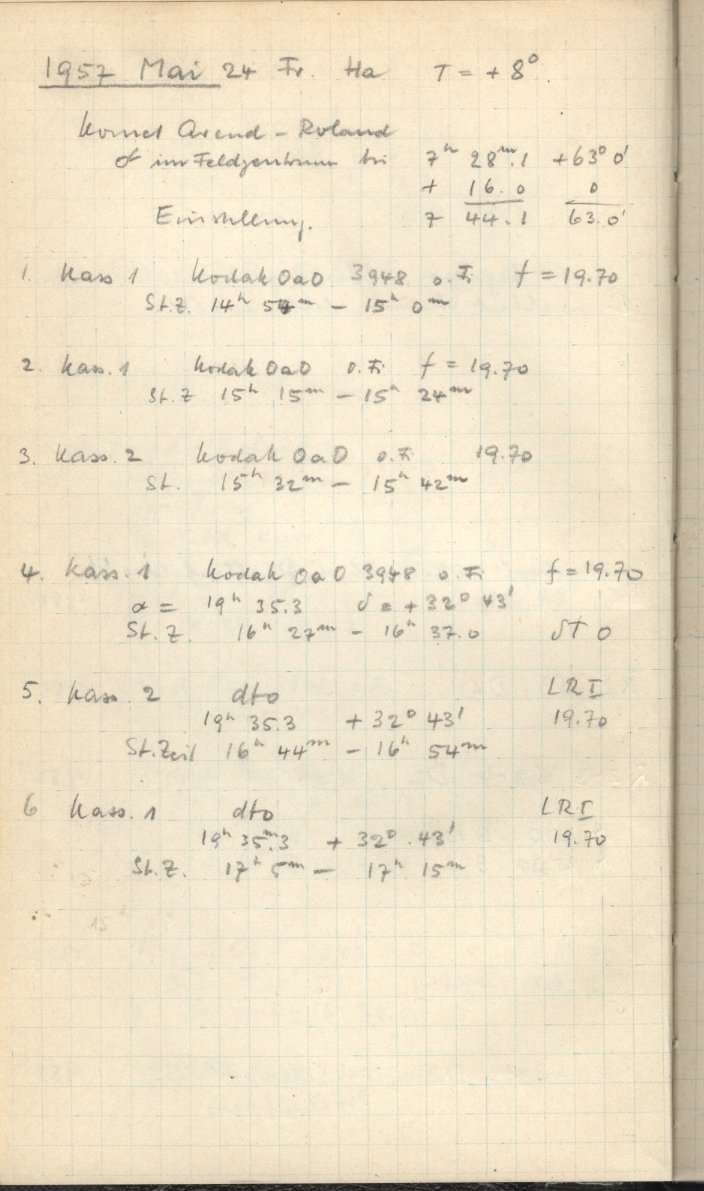 1957 Mai 24 Fr. Ha T = + 8°
Komet Arend - Roland
☄ im Feldzentrum bei 7ʰ 28ᵐ.1 +63° 0'
+ 16.0 0
Einstellung. 7 44.1 63.0'
1. Kass 1 Kodak OaO 3948 o.Fi f = 19.70
St.Z. 14ʰ 54ᵐ - 15ʰ 0ᵐ
2. Kass. 1 Kodak OaO o.Fi. f = 19.70
St.Z 15ʰ 15ᵐ - 15ʰ 24ᵐ
3. Kass. 2 Kodak OaO o.Fi 19.70
St. 15ʰ 32ᵐ - 15ʰ 42ᵐ
4. Kass. 1 Kodak OaO 3948 o.Fi f = 19.70
α = 19ʰ 35.3 δ = + 32° 43'
St.Z. 16ʰ 27ᵐ - 16ʰ 37.0 δT 0
5. Kass. 2 dto LRI
19ʰ 35.3 + 32° 43' 19.70
St.Zeit 16ʰ 44ᵐ - 16ʰ 54ᵐ
6 Kass. 1 dto LRI
19ʰ 35ᵐ.3 + 32° .43' 19.70
St.Z. 17ʰ 5ᵐ - 17ʰ 15ᵐ